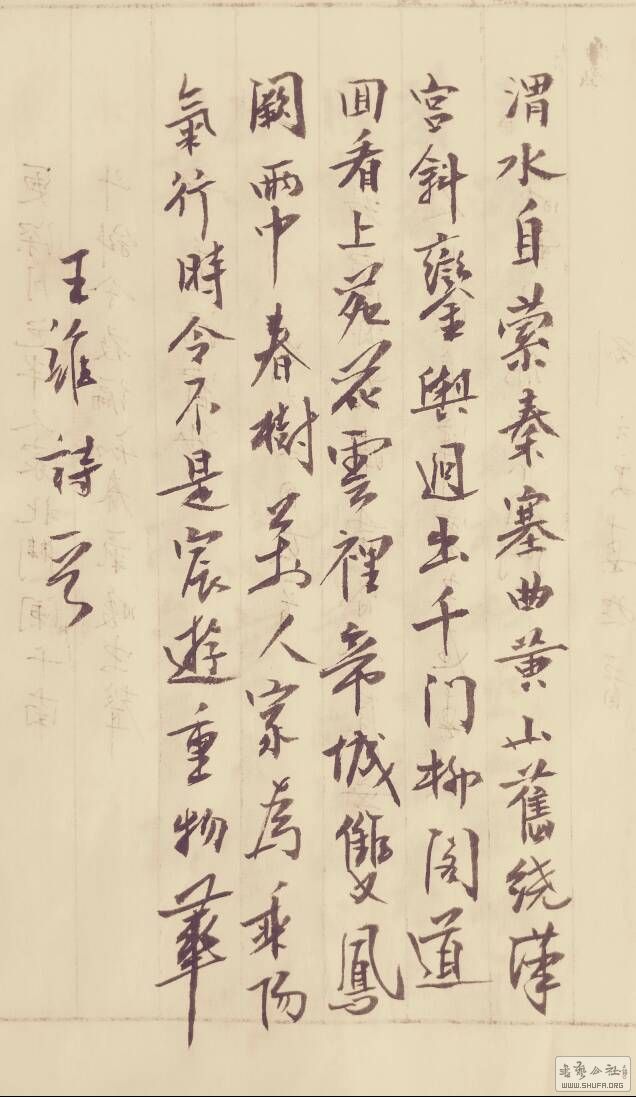 渭水自萦秦塞曲黄山舊绕漢
宫斜鑾輿迥出千门柳阁道
回看上苑花雲裡帝城雙鳳
阙雨中春樹萬人家為乘陽
氣行時令不是宸遊重物華
王維詩一首
WWW.SHUFA.ORG